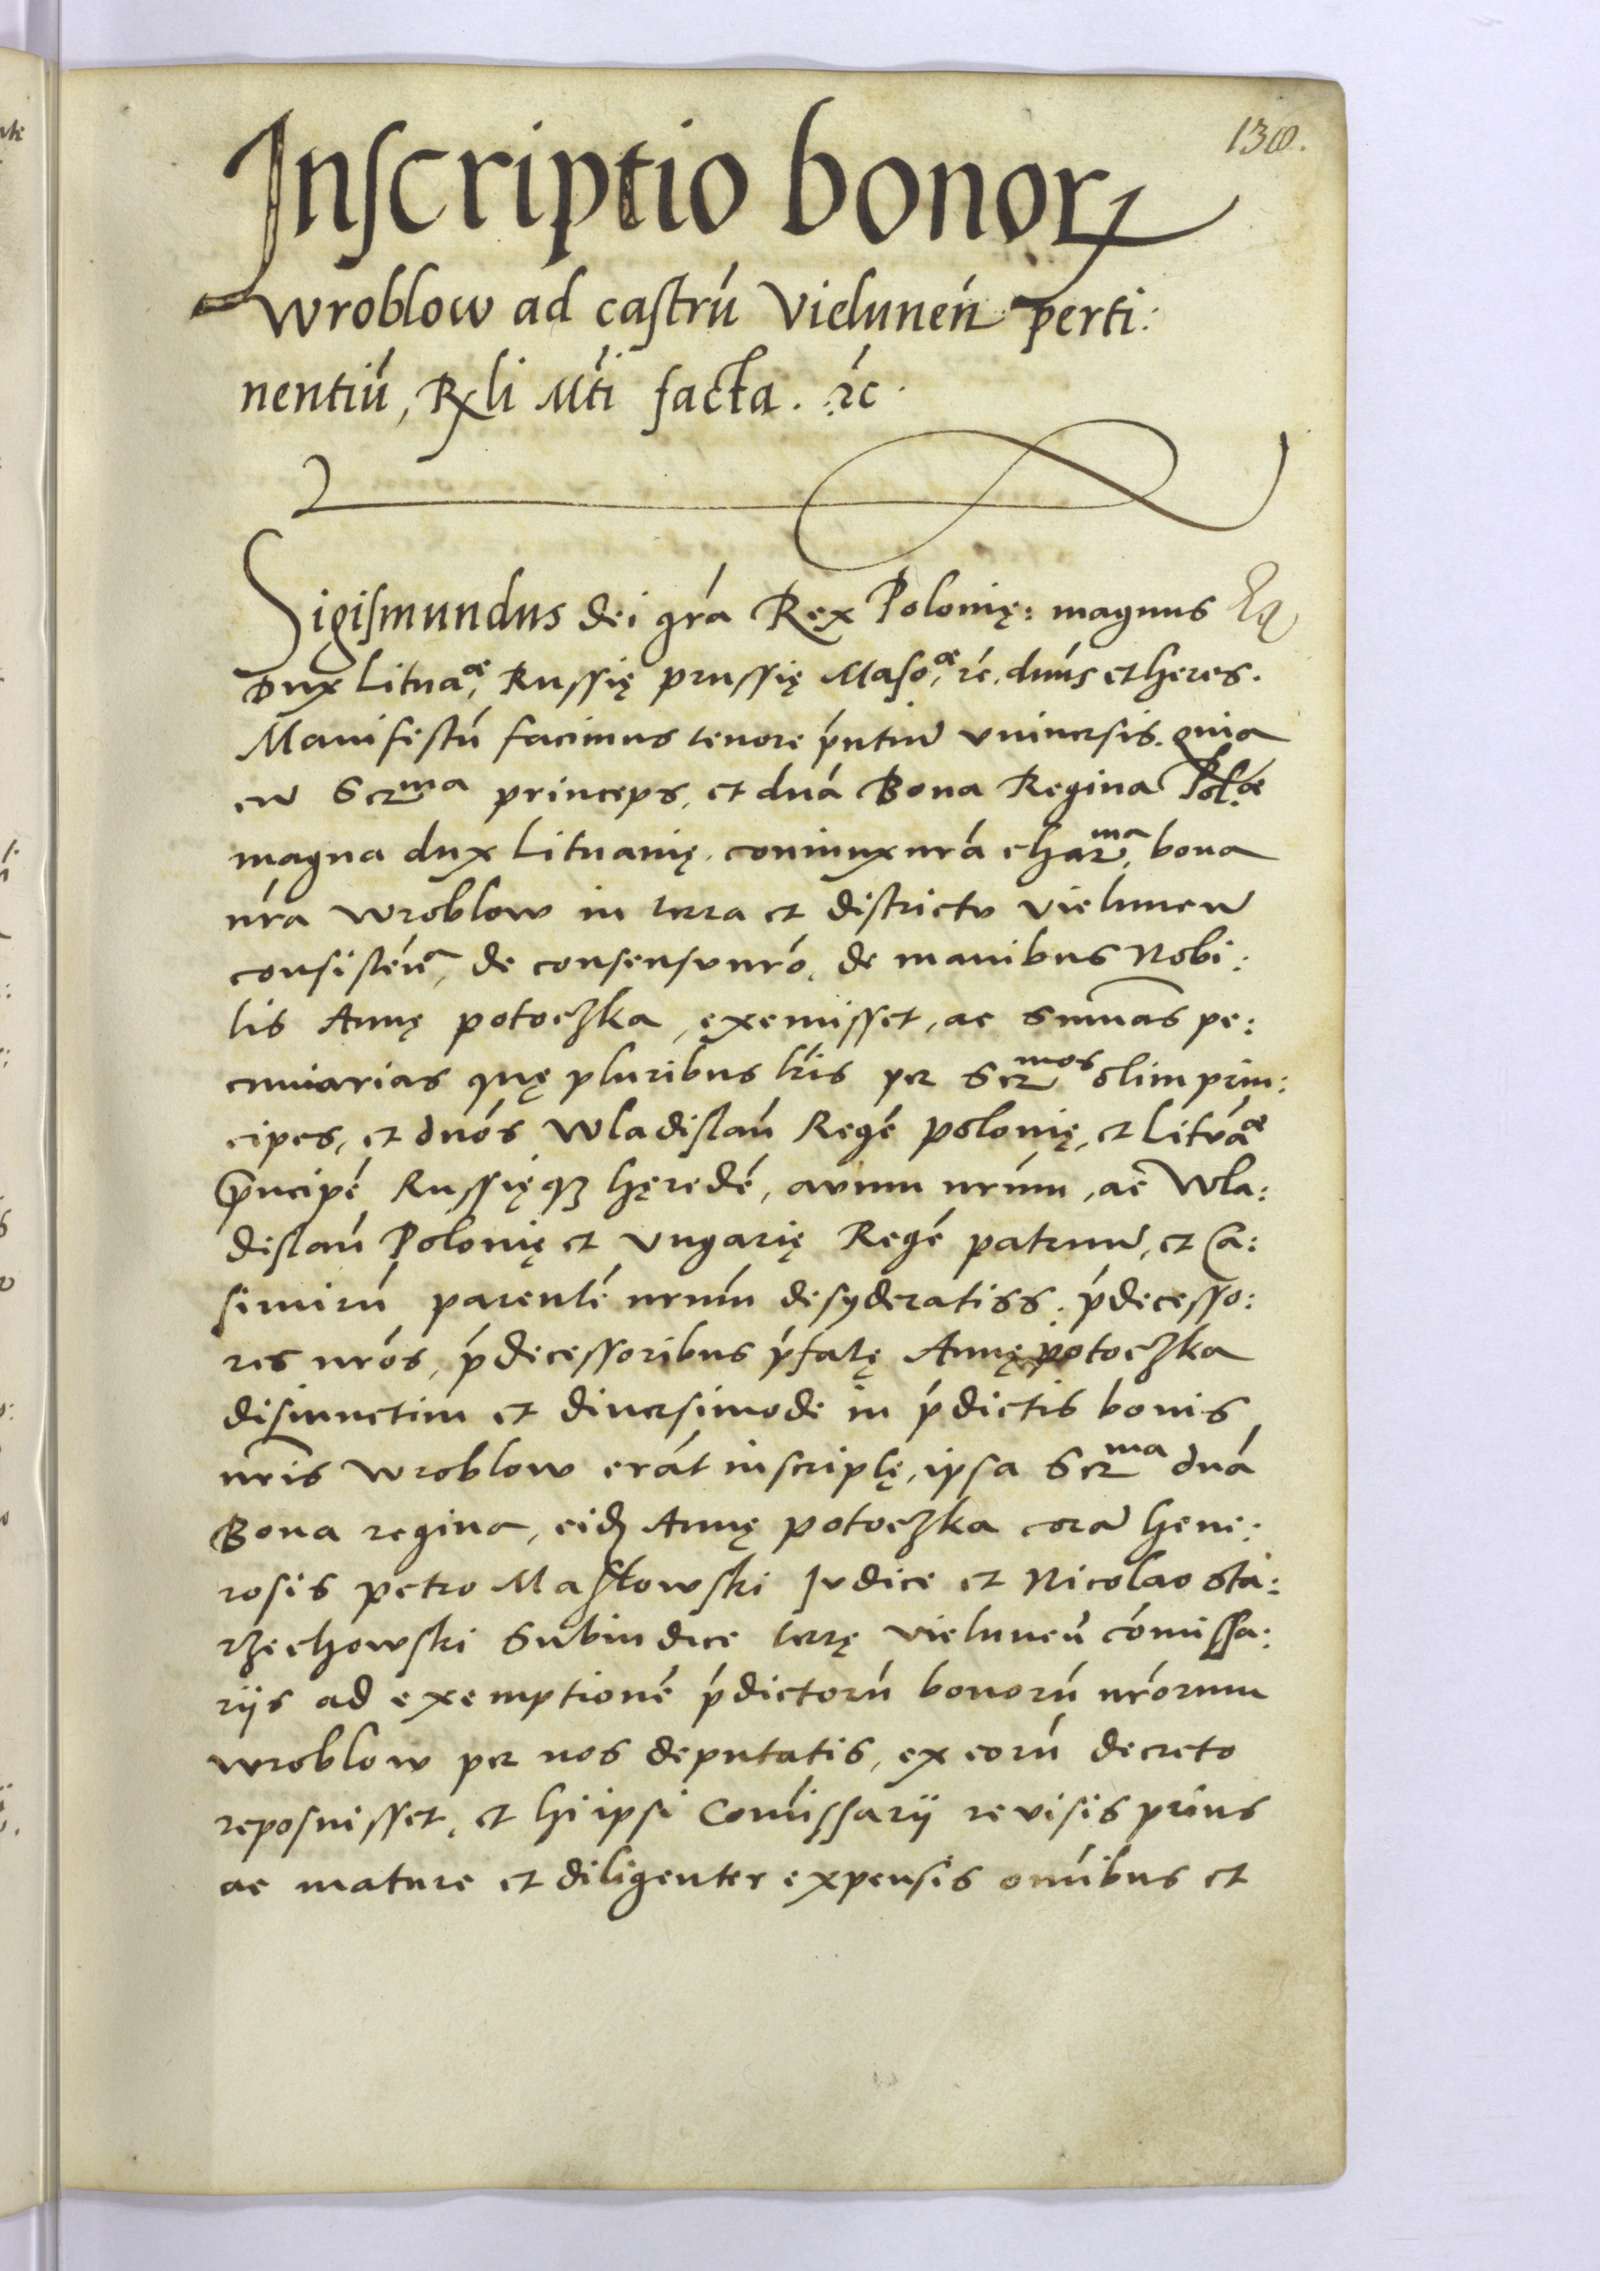 130.
Inscriptio bonorꝝ
Wroblow ad castrú Vieluneń perti:
nentiú, Rxli Mti facta. ꝛc.
Sigismundus dei grá Rex Polonię: magnus
Dux Lituaᵃᵉ, Russię prussię Masoᵃᵉ, ꝛc. dnús et heres.
Manifestú facimus tenore pńtiu̅ vniuersis. quia
cu̅ Serᵐᵃ princeps, et dná Bona Regina Pol.æ
magna dux Lituanię. coniunx nrá charᵐᵃ, bona
nŕa Wroblow in terra et districtu vielunen̅
consisteń, de consensu nró, de manibus Nobi:
lis Annę potoczka, exemisset, ac sum̅as pe:
cuniarias quę pluribus lr̅is per Serᵐᵒˢ olim prin:
cipes, et dnós Wladislaú Regé polonię, et Lituáᵃᵉ
príncipé Russięqꝫ hęredé, auum nrúm, ac Wla:
dislaú Polonię et Vngarię Regé patruu̅, et Ca:
simirú parenté nrúm desyderatiss: ṕdecesso:
res nrós, ṕdecessoribus ṕfatę Annę potoczka
disiunctim et diuersimode in ṕdictis bonis
nr̅is Wroblow eránt inscriptę, ipsa Serᵐᵃ dná
Bona regina, eidꝫ Annę potoczka cora̅ Gene:
rosis petro Maslowski Judice et Nicolao Sta:
rzechowski Subiudice terrę vieluneń cómissa:
rijs ad exemptioné ṕdictorú bonorú nŕorum
Wroblow per nos deputatis, ex eorú decreto
reposuisset, et hi ipsi Comissarij revisis prius
ac mature et diligenter expensis omíbus et